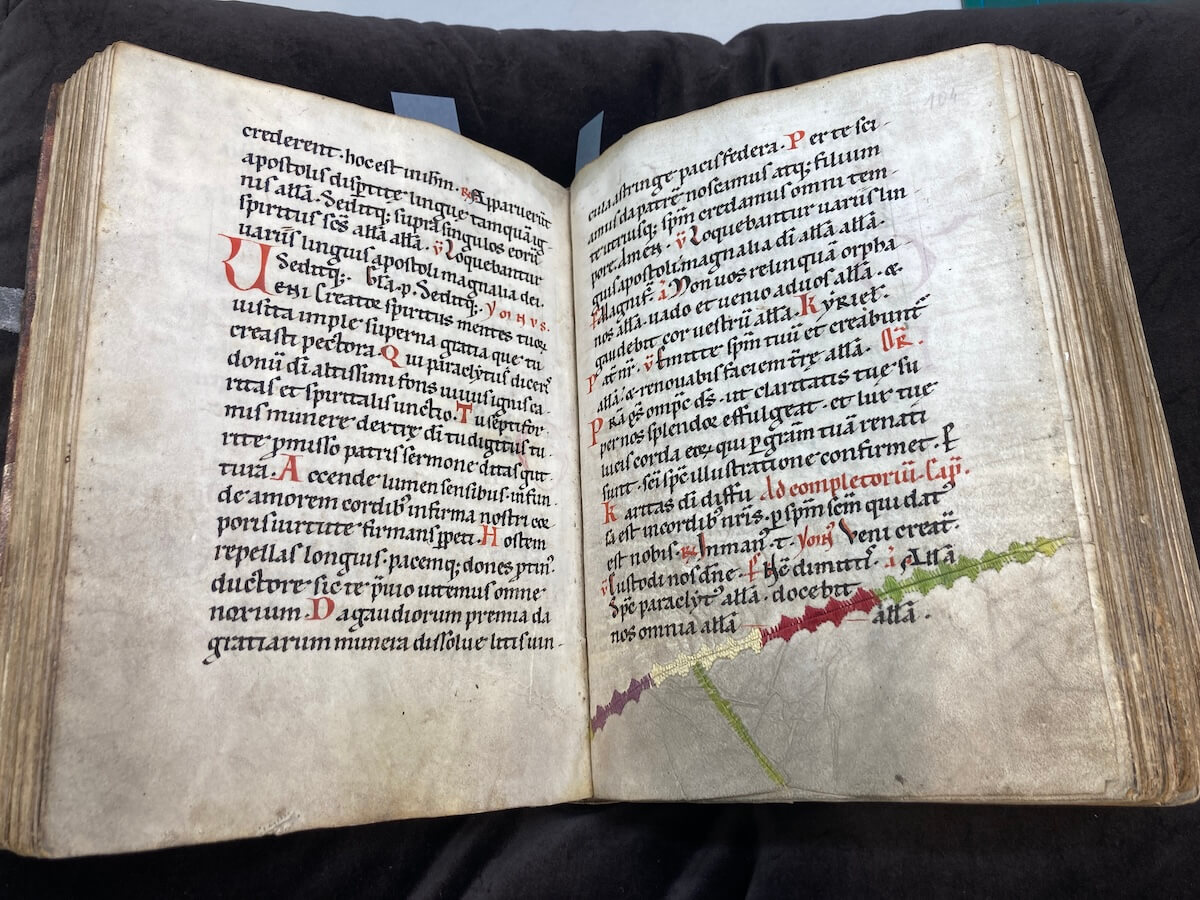 crederent · hoc est in ihm̄ . ℟ Apparuerūt
apostolis disp̄tite lingue tamquā ig
nis alłā · Seditq; supra singulos eorū
spiritus sc̄s alłā alłā . ℣ Loquebantur
uariis linguis apostoli magnalia dei .
Seditq; · Gła . p . Seditq; . Ymnvs .
Veni Creator spiritus mentes tuoꝝ
uisita imple superna gratia que tu
creasti pectora . Qui paraclytus diceris
donū di altissimi fons uiuus ignis ca
ritas et spiritalis unctio . Tu septifor
mis munere dextre di tu digitus tu
rite p̄misso patris sermone ditas gut
tura . Accende lumen sensibus infun
de amorem cordib; infirma nostri cor
poris uirtute firmans ꝑpeti . Hostem
repellas longius · pacemq; dones ꝓtin'
ductore sic te p̄uio uitemus omne
noxium . Da gaudiorum premia da
gratiarum munera dissolue litis uin-
104
cula astringe pacis federa . Per te sci-
amus da patrē noscamus atq; filium
te utriusq; sp̄m credamus omni tem
pore . Amen . ℣ Loquebantur uariis lin
guis apostoli magnalia di alłā alłā .
Magnif . Non uos relinquā orpha
nos alłā . uado et uenio ad uos alłā . &
gaudebit cor uestrū alłā . Kyriel' .
Pat' nr' . ℣ Emitte sp̄m tuū et creabunt'
alłā . & renouabis faciem tr̄e alłā . Or .
Pr̄a qs̄ omp̄c ds̄ . ut claritatis tue su
per nos splendor effulgeat . et lux tue
lucis corda eoꝝ qui ꝑ gr̄am tuā renati
sunt . sc̄i sp̄c illustratione confirmet . P
Karitas di diffu Ad completoriū . Cap̄ .
sa est in cordib; nr̄is . ꝑ sp̄m sc̄m qui dat'
est nobis . ℟ In man' . t . Ymn' Veni creat' .
℣ Custodi nos dn̄e . Nc̄ dimitti' . Alłā
Sp̄c paraclyt' alłā . docebit
nos omnia alłā alłā .